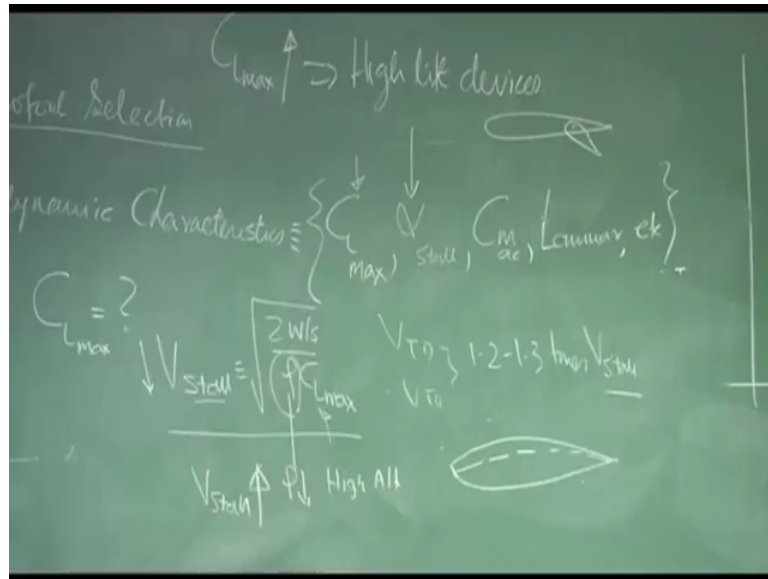 C_Lmax ↑ ⇒ High lift devices
ofoil Selection
dynamic Characteristics ≡ { C_L max, α stall, C_m ac, Laminar, etc }
C_Lmax = ?
↓ V_Stall ≡ √(2 W/S / ρ C_Lmax)
V_TD } 1.2-1.3 times V_Stall
V_TO
V_Stall ↑ ρ↓ High Alt